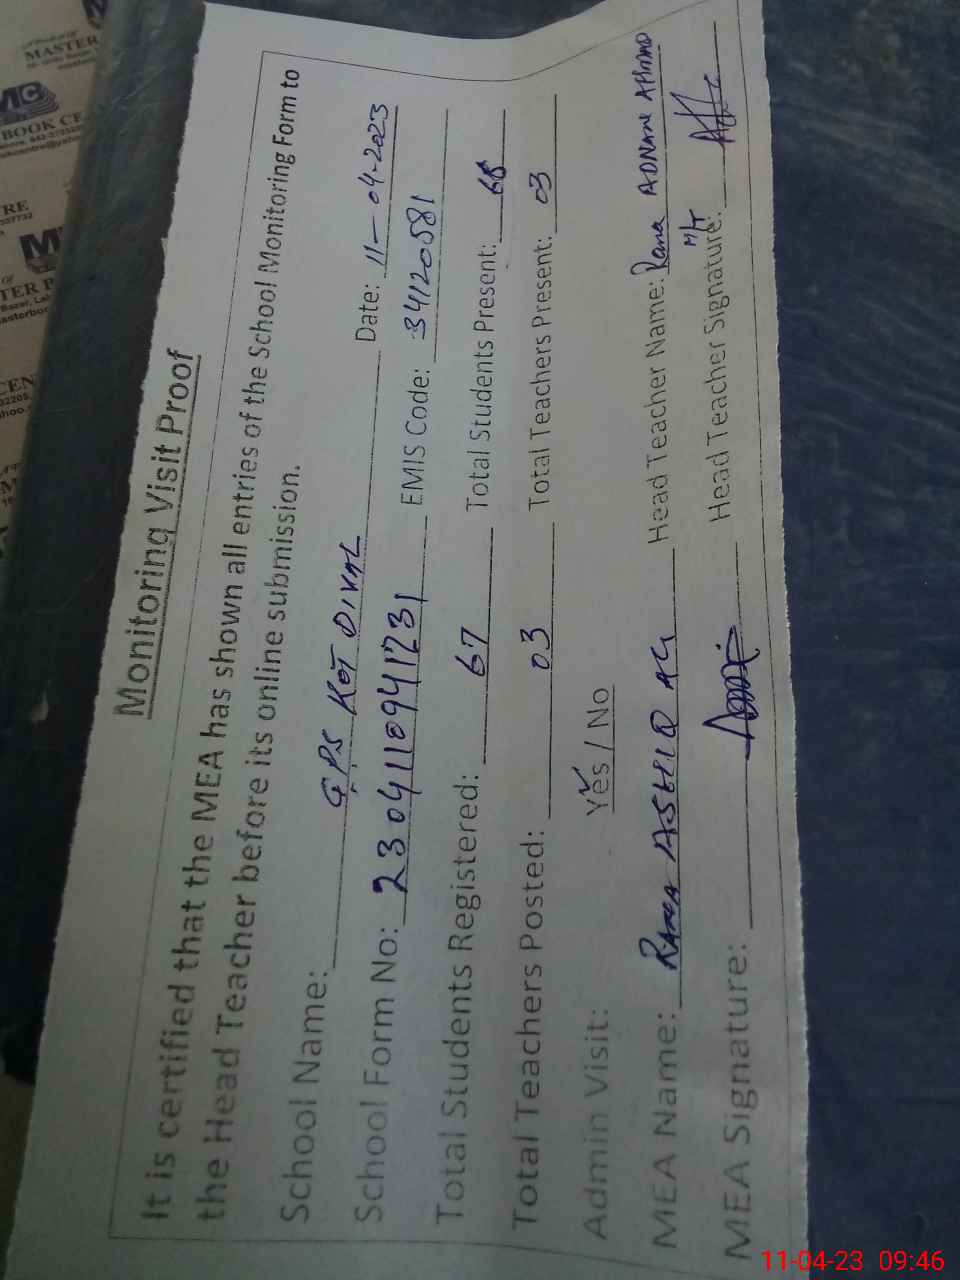 Monitoring Visit Proof
It is certified that the MEA has shown all entries of the School Monitoring Form to
the Head Teacher before its online submission.
School Name: GPS KOT DIWAL Date: 11-04-2023
School Form No: 2304110941731 EMIS Code: 34120581
Total Students Registered: 67 Total Students Present:
Total Teachers Posted: 03 Total Teachers Present: 03
Admin Visit: Yes / No
MEA Name: RANA ASHIQ Head Teacher Name: Rana ADNAN AHMAD
MEA Signature: Head Teacher Signature:
MASTER
MC
BOOK CE
11-04-23 09:46